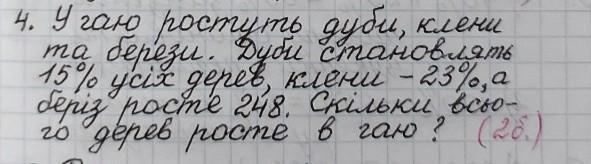 4. У гаю ростуть дуби, клени
та берези. Дуби становлять
15% усіх дерев, клени - 23%, а
беріз росте 248. Скільки всьо-
го дерев росте в гаю? (2б.)